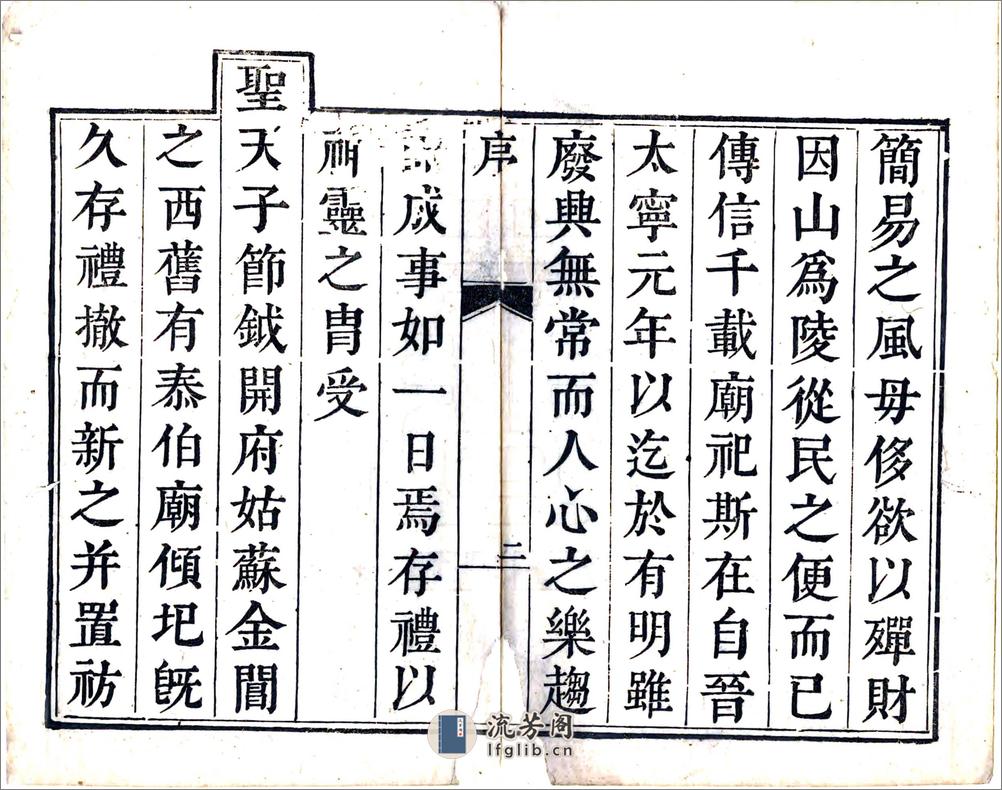 簡易之風毋侈欲以殫財
因山爲陵從民之便而已
傳信千載廟祀斯在自晉
太寧元年以迄於有明雖
廢興無常而人心之樂趨
序
二
成事如一日焉存禮以
神靈之胄受
聖天子節鉞開府姑蘇金閶
之西舊有泰伯廟傾圯旣
久存禮撤而新之并置祊
流芳阁
lfglib.cn